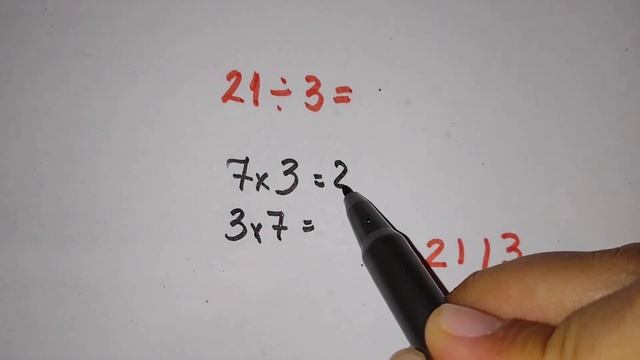 21÷3=
7x3=2
3x7=
21/3